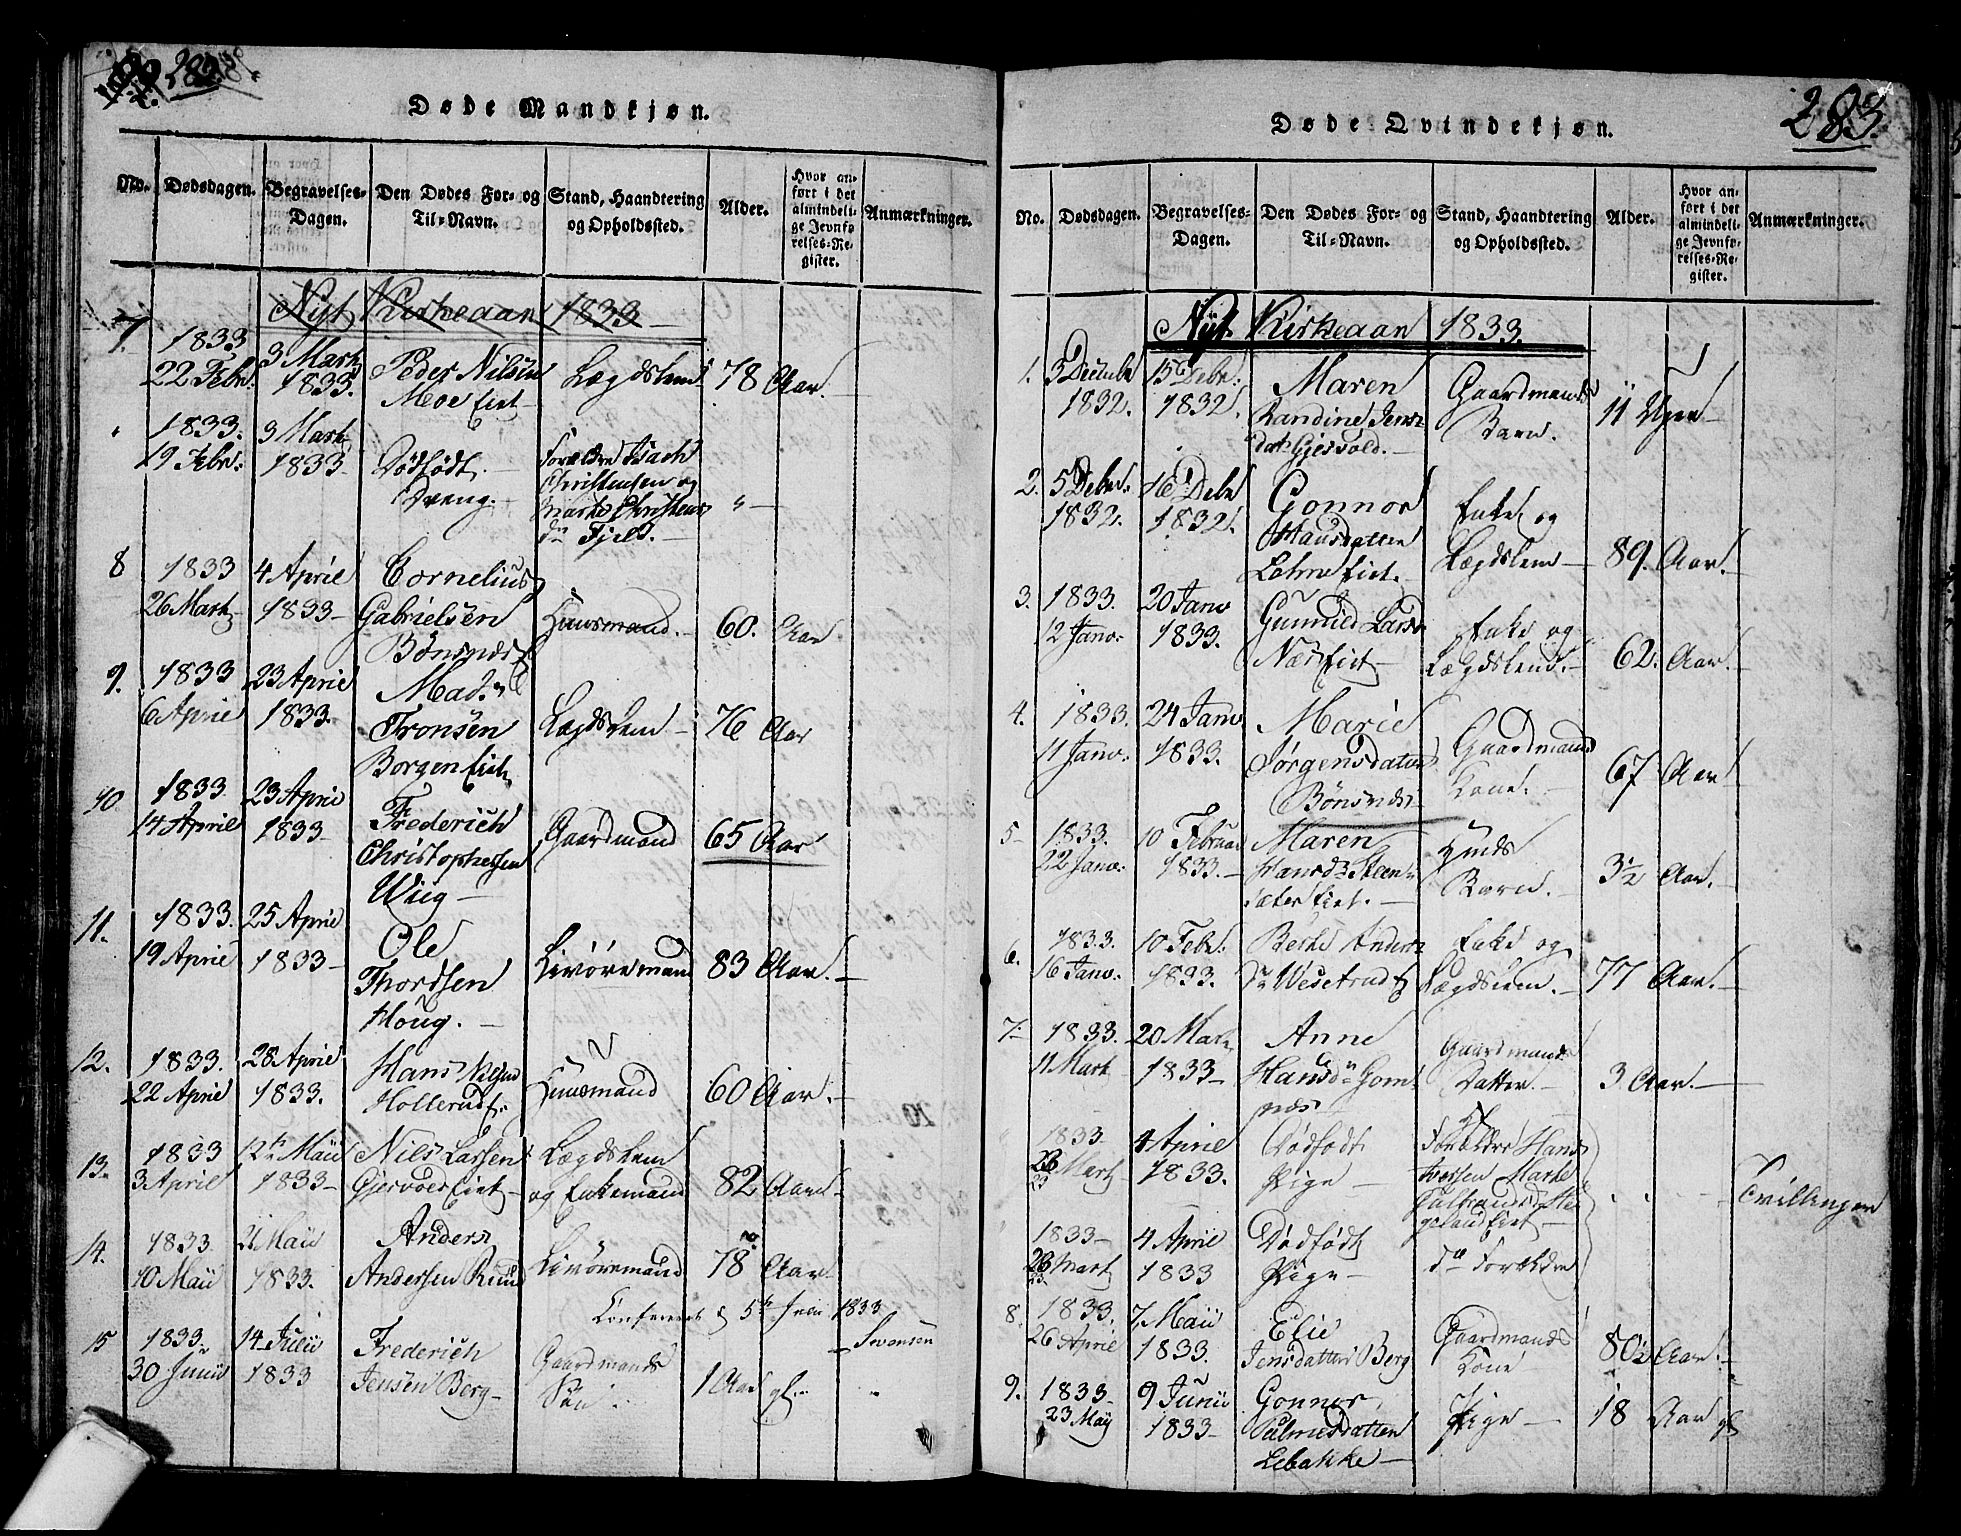 Døde Mandkjøn.
No.
Dødsdagen.
Begravelses-
Dagen.
Den Dødes For- og
Til-Navn.
Stand, Haandtering
og Opholdssted.
Alder.
Hvor an-
ført i det
almindeli-
ge Jevnfø-
relses-Re-
gister.
Anmærkninger.
Nyt Kirkeaar 1833
7. 1833 22 Febr. 3 Mart 1833. Peder Nilsen Moe Eiet Lægdslem 78 Aar.
1833. 19 Febr. 3 Mart 1833 Dødfødt Dreng. Forældre Isach Christensen og Marthe Christens dr Fjeld.
8 1833 26 Mart 4 April 1833 Cornelius Gabrielsen Bønsnæs Huusmand. 60. Aar
9. 1833 6 April 23 April 1833. Mads Tronsen Borgen Eiet Lægdslem 76 Aar
10 1833 14 April 23 April 1833 Frederich Christophersen Wiig Gaardmand 65 Aar
11. 1833. 19 April 25 April 1833 Ole Thordsen Houg. Livøremand 83 Aar.
12. 1833. 22 April 28 April 1833. Hans Hollerud Huusmand 60 Aar.
13. 1833 3 April 12te Maii 1833 Nils Larsen Eiet Lægdslem og Enkemand 82 Aar
14. 1833. 10 Maii 21 Maii 1833. Anders Andersen Ruud Livøremand 78 Aar
Confereret 5te 1833
Svensen
15 1833. 30 Junii 14 Julii 1833 Frederich Jensen Berg Gaardmands Søn 1 Aar gl.
283.
Døde Qvindekjøn.
No.
Dødsdagen.
Begravelses-
Dagen.
Den Dødes For- og
Til-Navn.
Stand, Haandtering
og Opholdssted.
Alder.
Hvor an-
ført i det
almindeli-
ge Jevnfø-
relses-Re-
gister.
Anmærkninger.
Nyt Kirkeaar 1833.
1. 3 Decembr 1832. 15 Debr. 1832. Maren Randine Jens datr Gjesvold. Gaardmands Barn. 11 Uger
2. 5 Debr. 1832. 16 Debr 1832. Gonnor Hansdatter Eiet. Enke og Lægdslem 89. Aar.
3. 1833. 12 Janv. 20 Janv 1833. Gunnild Larsdr Næs Eiet Enke og Lægdslem. 62. Aar.
4. 1833. 11 Janv. 24 Janv 1833. Marie Jørgensdatter Bønsnæs Gaardmands Kone. 67 Aar
5 1833. 22 Janv. 10 Februar 1833. Maren Hansdr Steensæter Eiet. Hmds Barn. 3½ Aar.
6. 1833. 16 Janv. 10 Febr. 1833. Berthe Anders dr Wesetrud Enke og Lægdslem. 77 Aar.
7. 1833. 11 Mart 20 Mart 1833 Anne Hansdr Gomnæs Gaardmands Datter. 3 Aar.
1833 23 Mart 4 April 1833. Dødfødt Pige Forældre Hans Iversen Marthe Eiet
Tvillinger
1833 23 Mart 4 April 1833 Dødfødt Pige do Forældre
8. 1833. 26 April 7 Maii 1833. Elie Jensdatter Berg Gaardmands Kone 80½ Aar.
9. 1833 23 Maij 9 Junii 1833 Gonnor Palmesdatter Lebakke Pige 18 Aar gl